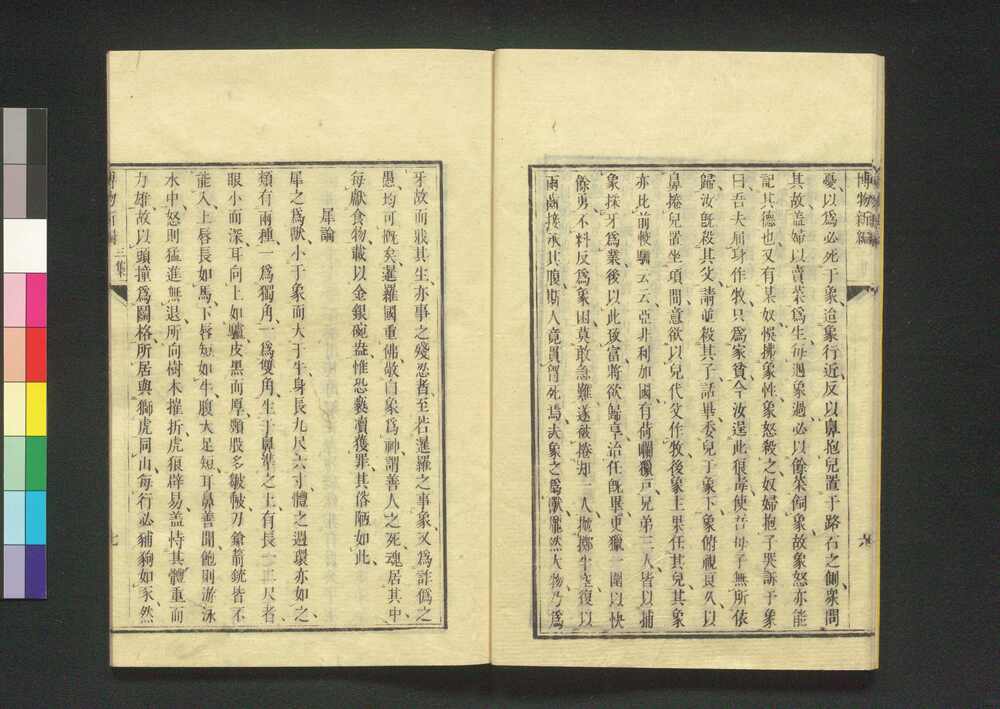 博物新編
憂以爲必死于象迨象行近反以鼻抱兒置于路右之側衆問
其故蓋婦以賣菜爲生每遇象過必以餘菜飼象故象怒亦能
記其德也又有某奴悞拂象性象怒殺之奴婦抱子哭訴于象
曰吾夫屈身作牧只爲家貧今汝逞此狠毒使吾母子無所依
歸汝旣殺其父請並殺其子話畢委兒于象下象俯視良久以
鼻捲兒置坐項間意欲以兒代父作牧後象主果任其兒其象
亦比前使馴云云亞非利加國有荷囒獵戶兄弟三人皆以捕
象採牙爲業後以此致富將欲歸享治任旣畢更獵一圍以快
餘勇不料反爲象困莫敢急難遂被捲却一人抛擲牛空復以
兩齒接承其腹斯人竟貫胷死焉夫象之爲獸龐然大物乃爲
牙故而戕其生亦事之殘忍者至若暹羅之事象又爲詐僞之
愚均可慨矣暹羅國重佛敬白象爲神謂善人之死魂居其中
每獻食物載以金銀碗盎惟恐褻凟獲罪其俗陋如此
犀論
犀之爲獸小于象而大于牛身長九尺六寸體之過環亦如之
類有兩種一爲獨角一爲雙角生于鼻準之上有長之三尺者
眼小而深耳向上如驢皮黑而厚頸股多皺皵刀鎗箭銃皆不
能入上唇長如馬下唇短如牛腹大足短耳鼻善聞飽則游泳
水中怒則猛進無退所向樹木摧折虎狼辟易蓋恃其體重而
力雄故以頭撞爲鬬格所居與獅虎同山每行必豧豞如豕然
博物新編
三集
七